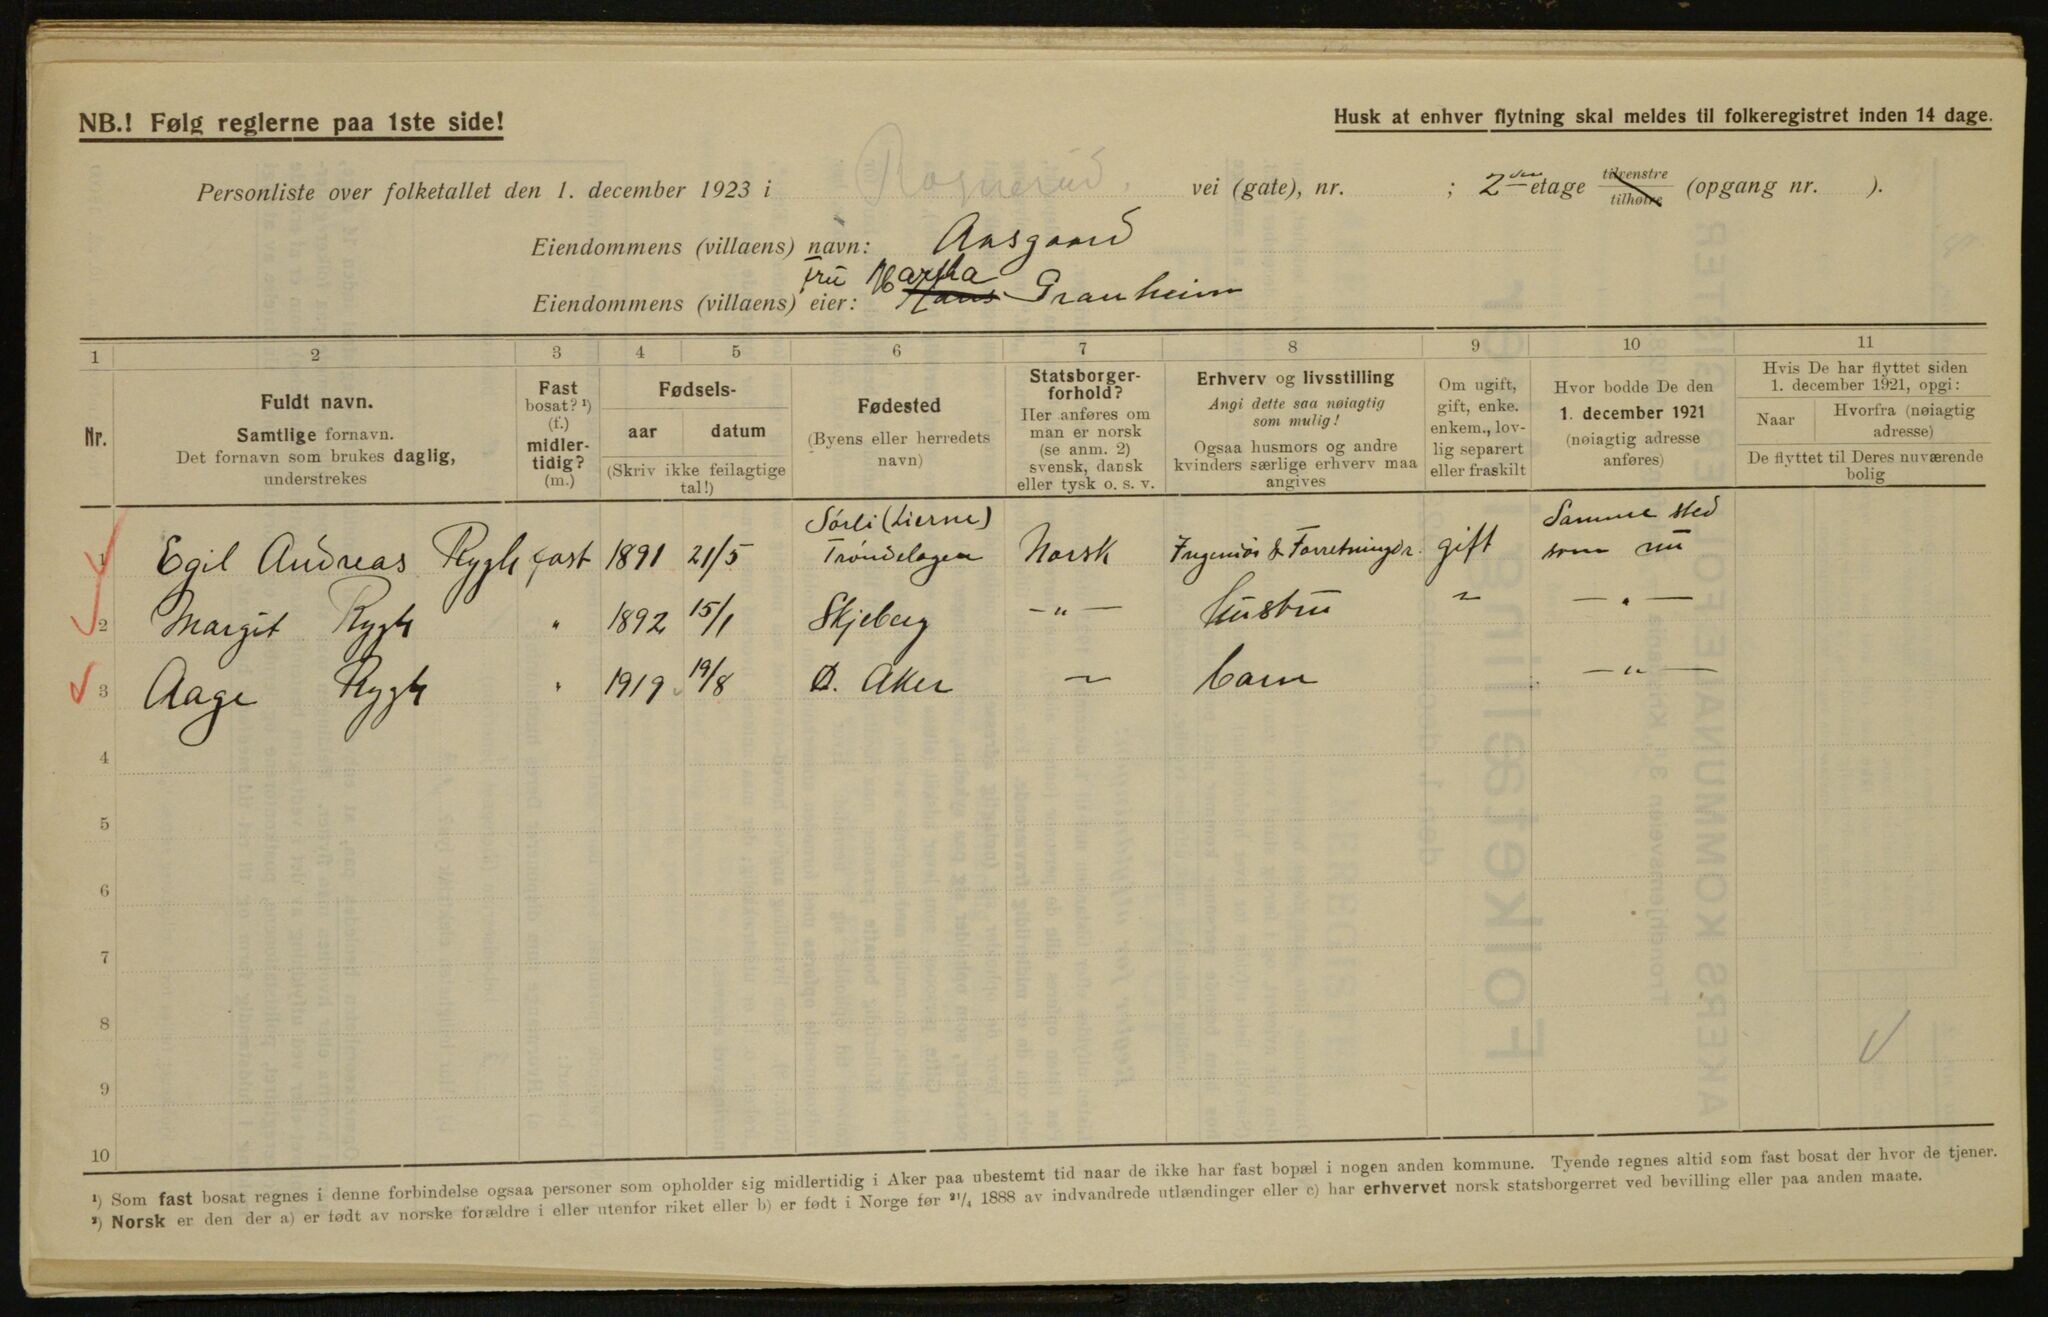 NB.! Følg reglerne paa 1ste side!
Husk at enhver flytning skal meldes til folkeregistret inden 14 dage.
Personliste over folketallet den 1. december 1923 i Rognerud. vei (gate), nr. ; 2den etage tilvenstre tilhøire (opgang nr. ).
Eiendommens (villaens) navn: Aasgaard
Fru Martha
Eiendommens (villaens) eier: Hans Granheim
1 2 3 4 5 6 7 8 9 10 11
Nr.
Fuldt navn.
Samtlige fornavn.
Det fornavn som brukes daglig,
understrekes
Fast
bosat? ¹)
(f.)
midler-
tidig?
(m.)
Fødsels-
aar datum
(Skriv ikke feilagtige
tal!)
Fødested
(Byens eller herredets
navn)
Statsborger-
forhold?
Her anføres om
man er norsk
(se anm. 2)
svensk, dansk
eller tysk o. s. v.
Erhverv og livsstilling
Angi dette saa nøiagtig
som mulig!
Ogsaa husmors og andre
kvinders særlige erhverv maa
angives
Om ugift,
gift, enke.
enkem., lov-
lig separert
eller fraskilt
Hvor bodde De den
1. december 1921
(nøiagtig adresse
anføres)
Hvis De har flyttet siden
1. december 1921, opgi:
Naar
Hvorfra (nøiagtig
adresse)
De flyttet til Deres nuværende
bolig
Sørli (Lierne) Samme sted
1 Egil Andreas Rygh fast 1891 21/5 Trøndelagen Norsk Ingeniør & Forretningsdr. gift som nu
2 Margit Rygh " 1892 15/1 Skjeberg — " — Hustru " — " —
3 Aage Rygh " 1919 19/8 Ø. Aker " barn — " —
4
5
6
7
8
9
10
¹) Som fast bosat regnes i denne forbindelse ogsaa personer som opholder sig midlertidig i Aker paa ubestemt tid naar de ikke har fast bopæl i nogen anden kommune. Tyende regnes altid som fast bosat der hvor de tjener.
²) Norsk er den der a) er født av norske forældre i eller utenfor riket eller b) er født i Norge før ²¹/₄ 1888 av indvandrede utlændinger eller c) har erhvervet norsk statsborgerret ved bevilling eller paa anden maate.